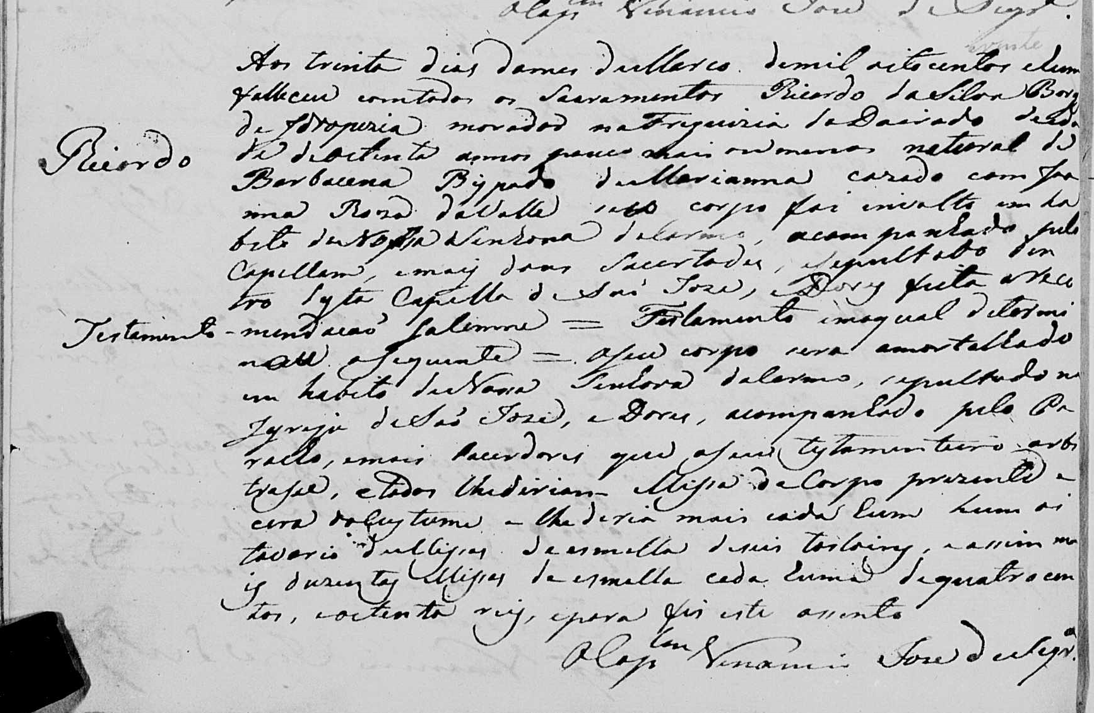 O Cap.lam Venancio José de Siqr.ª
Aos trinta dias domes deMarco demil oitocentos ehum
falleceu comtodos os Sacramentos Ricardo daSilva Borg
de Idropezia morador naFreguezia do Doirado deida
Ricardo
de deoitenta annos pouco mais oumenos natural de
Barbacena Bispado deMarianna cazado com Joa
nna Roza doValle seo corpo foi involto em ha
bito deNossa Senhora doCarmo, acompanhado pelo
Capellam, emais dous Sacerdotes, sepultado den
tro desta Capella de Saõ Joze, eDores feita arheco
Testamento - mendacaõ Solemne = Testamento emoqual detremi
nou oseguinte = oseu corpo sera amortalhado
em habito deNossa Senhora doCarmo, sepultado na
Igreja deSaõ Joze, e Dores, acompanhado pelo Pa
rallo, emais Sacerdores que oseu testamenteiro arbi
trasse, etodos lhediriam Missa deCorpo prezente e
cera doCustume e lhederia mais cada hum hum oi
tavario deMissas deesmolla deseis tostoins, eassim ma
is duzentas Missas deesmolla cada huma dequatrocen
tos, eoitenta reis, epara fis este assento
O Cap.lam Venancio Joze deSiqr.ª